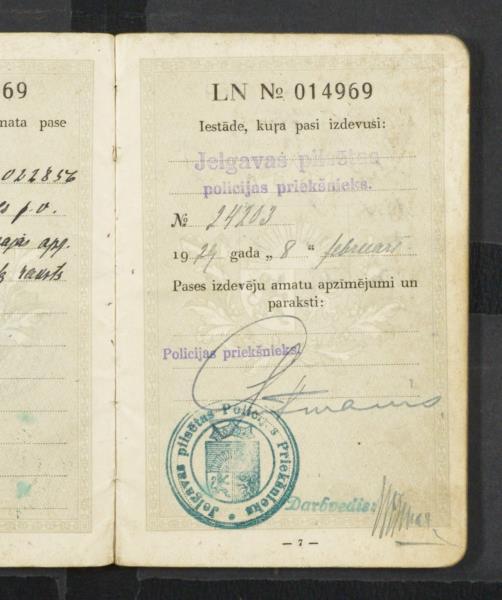 69
mata pase
022856
p.v.
LN № 014969
Iestāde, kuŗa pasi izdevusi:
Jelgavas pilsētas
policijas priekšnieks.
№ 24203
1929 gada „ 8 “ februārī
Pases izdevēju amatu apzīmējumi un
paraksti:
Policijas priekšnieks:
Jelgavas pilsētas Policijas Priekšnieks
Darbvedis:
— 7 —